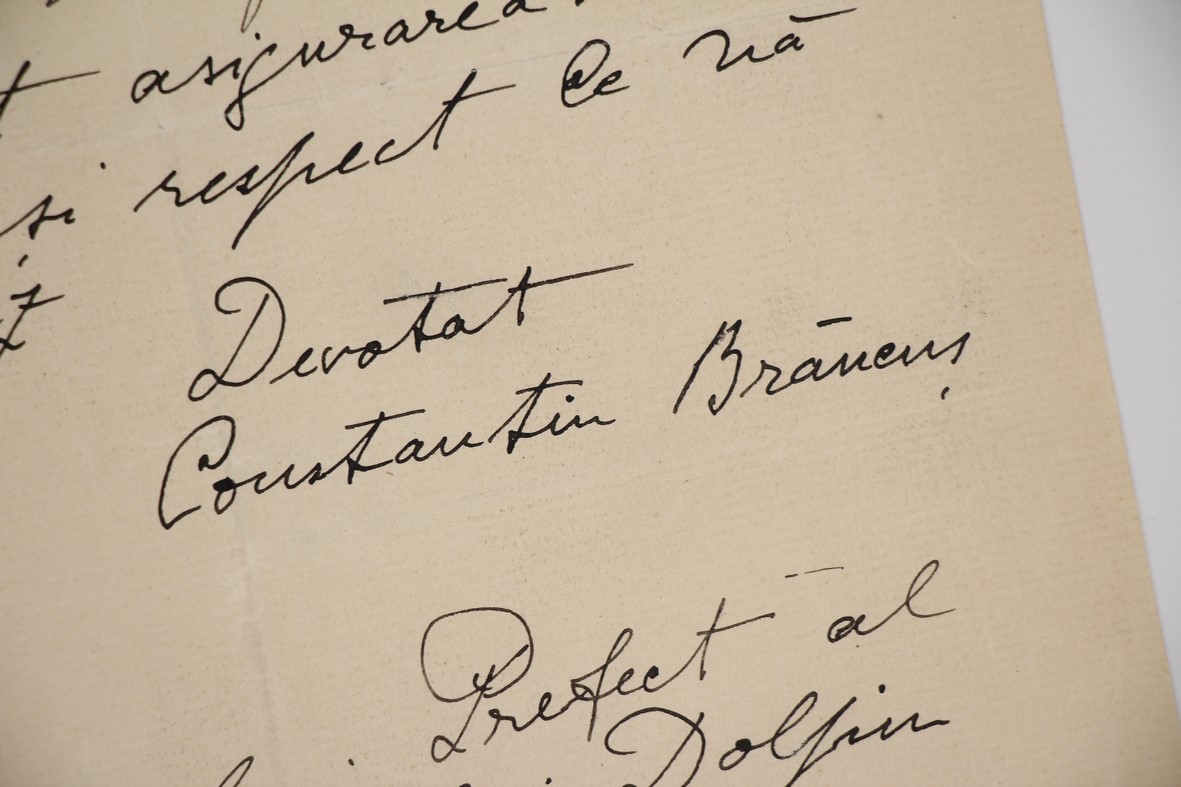 asigurarea
si respect Ce vă
Devotat
Constantin Brâncuș
Prefect al
Dolfin